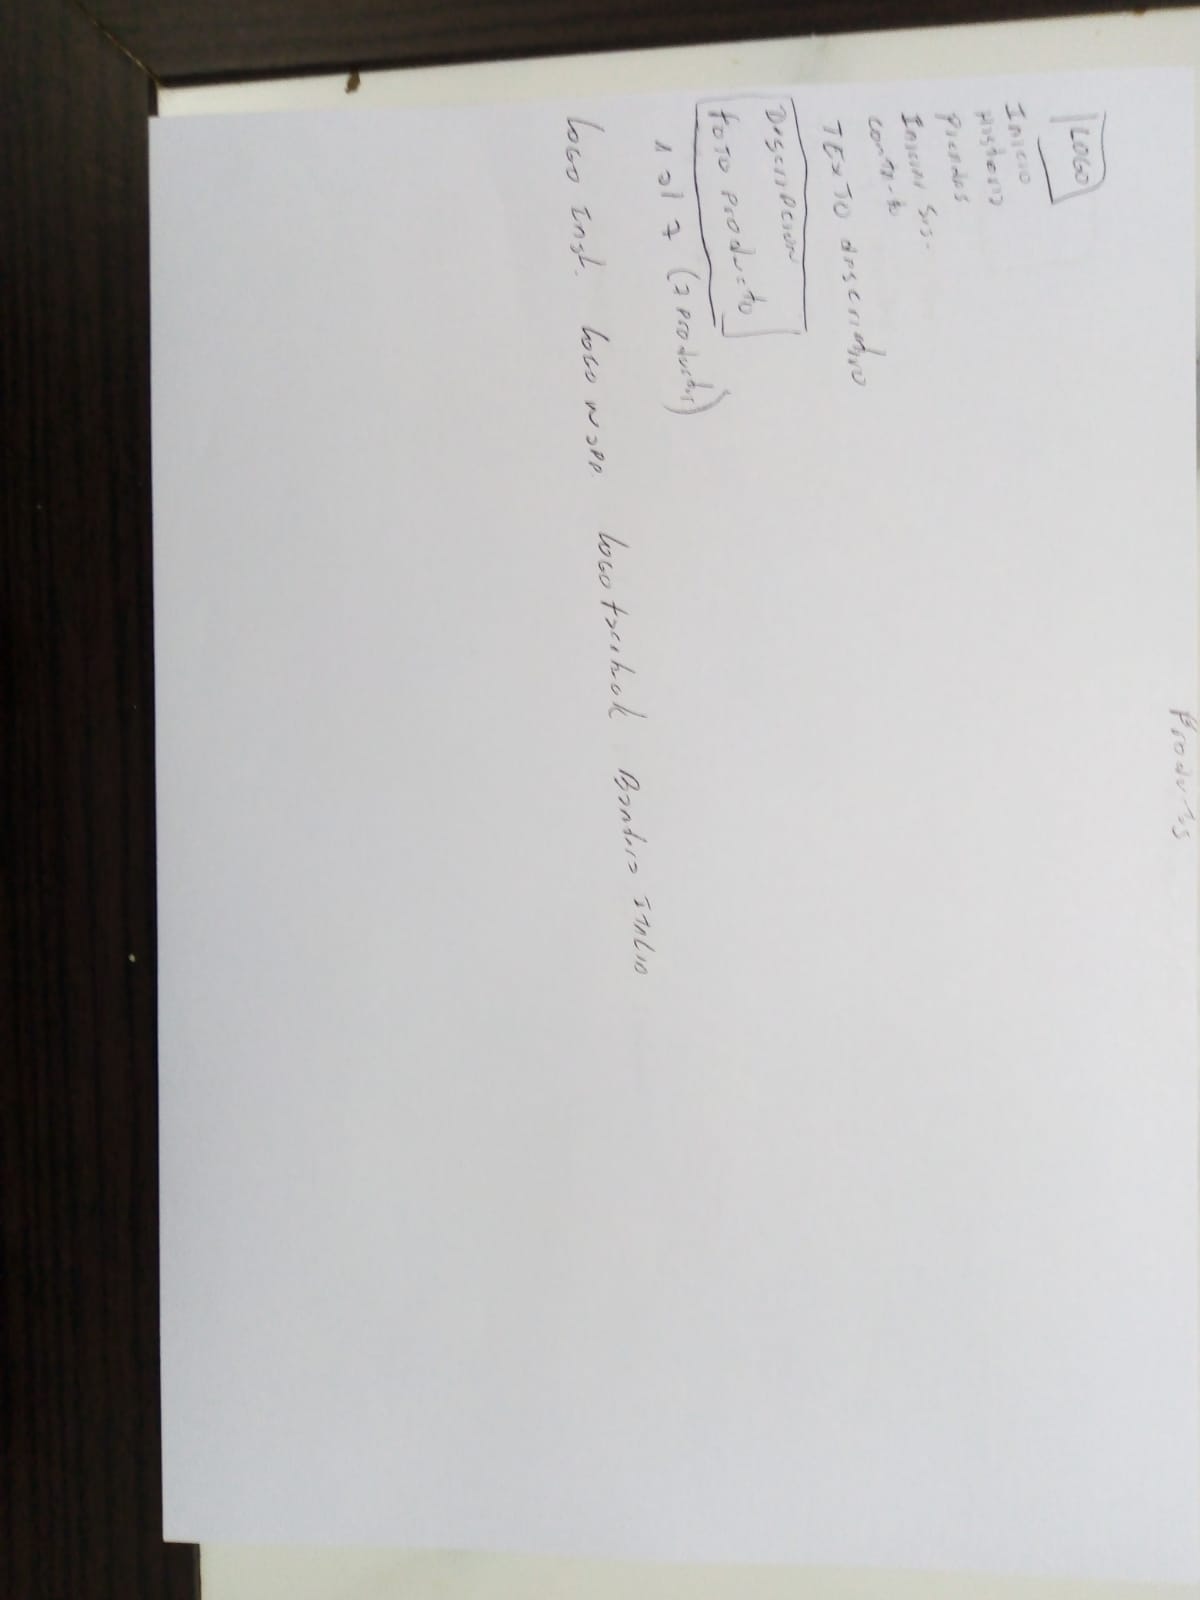 Productos
LOGO
Inicio
Historia
Prendas
Iniciar Ses.
Contacto
TExTO descriptivo
Descripcion
foto producto
1 al 7 (7 productos)
Logo Inst. Logo wapp. Logo facebook Bandera ITALIA